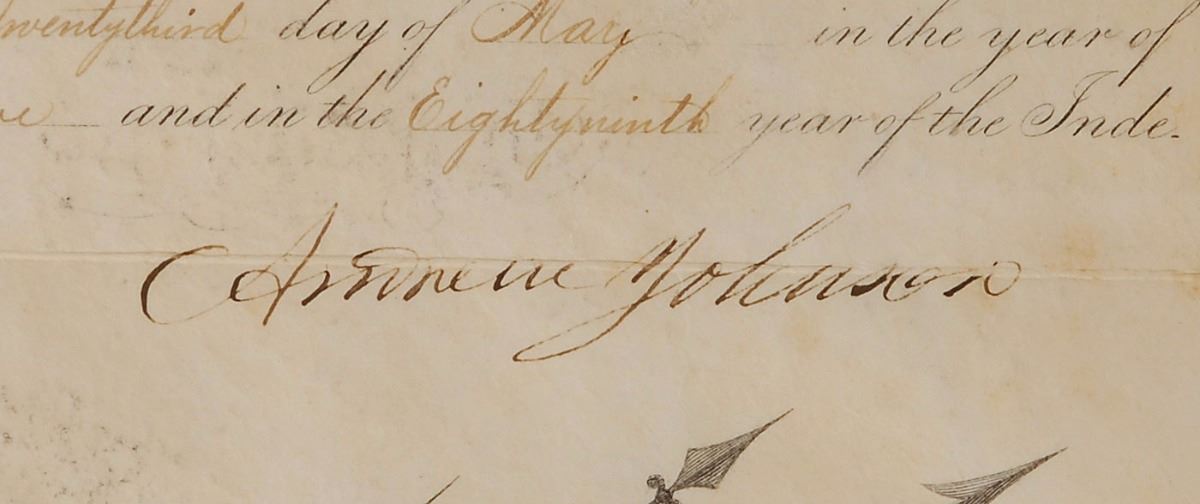 wentythird day of May in the year of
and in the Eightyninth year of the Inde-
Andrew Johnson